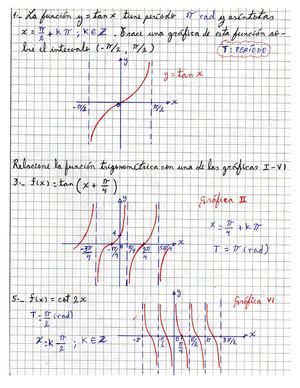 1.- La función y = tan x tiene período π rad y asíntotas
x = π/2 + kπ ; k ∈ Z . Trace una gráfica de esta función so-
bre el intervalo (-π/2 , π/2)
T: PERÍODO
y
y = tan x
-π/2 0 π/2 x
Relacione la función trigonométrica con una de las gráficas I - VI
3.- f(x) = tan (x + π/4)
Gráfica II
y
x = π/4 + kπ
1
T = π (rad)
-3π/4 0 π/4 3π/4 5π/4 x
5.- f(x) = cot 2x
Gráfica VI
y
T = π/2 (rad)
x = k π/2 ; k ∈ Z
-π π/2 π/4 π/2 π 3π/2 x